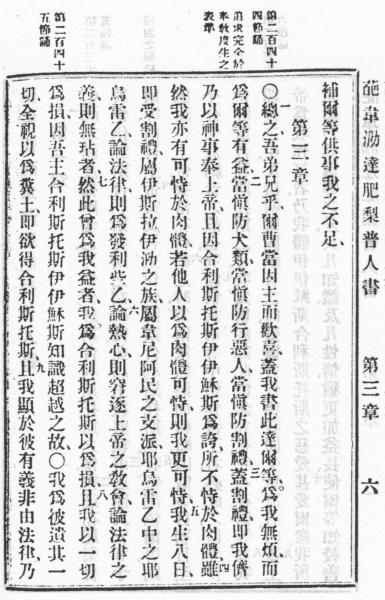 葩韋泐達肥梨普人書 第三章 六
第二百四十
四節誦
追求完全於
表章
第二百四十
五節誦
補爾等供事我之不足、
第三章
〇總之吾弟兄乎爾曹當因主而歡喜蓋我書此達爾等爲我無煩而
爲爾等有益當愼防犬類當愼防行惡人當愼防割禮蓋割禮即我儕
乃以神事奉上帝且因合利斯托斯伊伊穌斯爲誇所不恃於肉體雖
然我亦有可恃於肉體若他人以爲肉體可恃則我更可恃我生八日、
即受割禮屬伊斯拉伊泐之族屬韋尼阿民之支派耶烏雷乙中之耶
烏雷乙論法律則爲發利些乙論熱心則窘逐上帝之敎會論法律之
義則無玷者然此曾爲我益者我爲合利斯托斯以爲損且我以一切
爲損因吾主合利斯托斯伊伊穌斯知識超越之故〇我爲彼遺其一
切全視以爲糞土即欲得合利斯托斯且我顯於彼有義非由法律乃